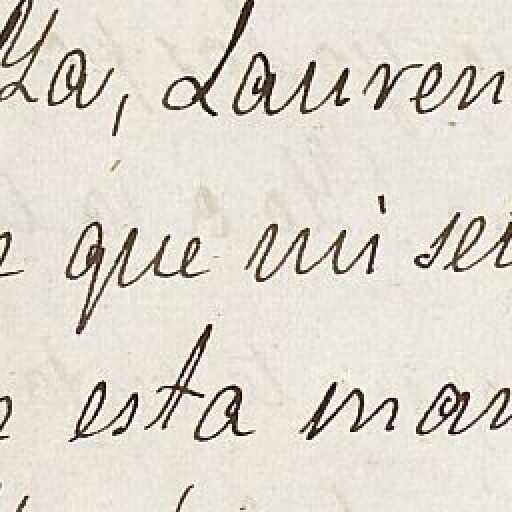 Ya, Lauren
que mi sei
esta man